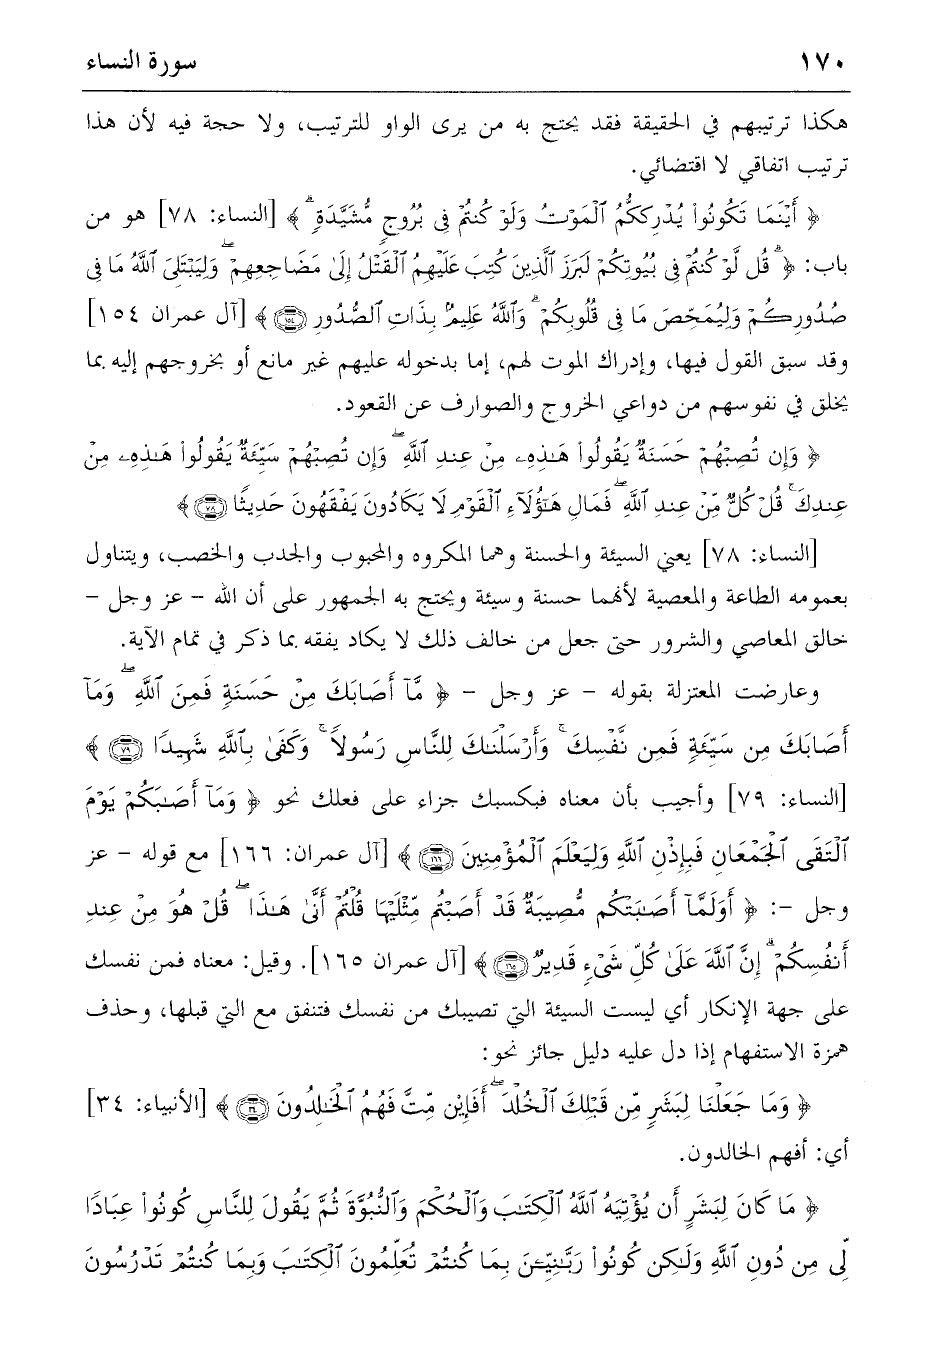 ١٧٠ سورة النساء
هكذا ترتيبهم في الحقيقة فقد يحتج به من يرى الواو للترتيب، ولا حجة فيه لأن هذا
ترتيب اتفاقي لا اقتضائي.
﴿ أَيْنَمَا تَكُونُوا۟ يُدْرِككُّمُ ٱلْمَوْتُ وَلَوْ كُنتُمْ فِى بُرُوجٍ مُّشَيَّدَةٍ ۗ ﴾ [النساء: ٧٨] هو من
باب: ﴿ ۗ قُل لَّوْ كُنتُمْ فِى بُيُوتِكُمْ لَبَرَزَ ٱلَّذِينَ كُتِبَ عَلَيْهِمُ ٱلْقَتْلُ إِلَىٰ مَضَاجِعِهِمْ ۖ وَلِيَبْتَلِىَ ٱللَّهُ مَا فِى
صُدُورِكُمْ وَلِيُمَحِّصَ مَا فِى قُلُوبِكُمْ ۗ وَٱللَّهُ عَلِيمٌۢ بِذَاتِ ٱلصُّدُورِ ١٥٤ ﴾ [آل عمران ١٥٤]
وقد سبق القول فيها، وإدراك الموت لهم، إما بدخوله عليهم غير مانع أو بخروجهم إليه بما
يخلق في نفوسهم من دواعي الخروج والصوارف عن القعود.
﴿ وَإِن تُصِبْهُمْ حَسَنَةٌ يَقُولُوا۟ هَـٰذِهِۦ مِنْ عِندِ ٱللَّهِ ۖ وَإِن تُصِبْهُمْ سَيِّئَةٌ يَقُولُوا۟ هَـٰذِهِۦ مِنْ
عِندِكَ ۚ قُلْ كُلٌّ مِّنْ عِندِ ٱللَّهِ ۖ فَمَالِ هَـٰٓؤُلَآءِ ٱلْقَوْمِ لَا يَكَادُونَ يَفْقَهُونَ حَدِيثًا ٧٨ ﴾
[النساء: ٧٨] يعني السيئة والحسنة وهما المكروه والمحبوب والجدب والخصب، ويتناول
بعمومه الطاعة والمعصية لأنهما حسنة وسيئة ويحتج به الجمهور على أن الله - عز وجل -
خالق المعاصي والشرور حتى جعل من خالف ذلك لا يكاد يفقه بما ذكر في تمام الآية.
وعارضت المعتزلة بقوله - عز وجل - ﴿ مَّآ أَصَابَكَ مِنْ حَسَنَةٍ فَمِنَ ٱللَّهِ ۖ وَمَآ
أَصَابَكَ مِن سَيِّئَةٍ فَمِن نَّفْسِكَ ۚ وَأَرْسَلْنَـٰكَ لِلنَّاسِ رَسُولًا ۚ وَكَفَىٰ بِٱللَّهِ شَهِيدًا ٧٩ ﴾
[النساء: ٧٩] وأجيب بأن معناه فبكسبك جزاء على فعلك نحو ﴿ وَمَآ أَصَـٰبَكُمْ يَوْمَ
ٱلْتَقَى ٱلْجَمْعَانِ فَبِإِذْنِ ٱللَّهِ وَلِيَعْلَمَ ٱلْمُؤْمِنِينَ ١٦٦ ﴾ [آل عمران: ١٦٦] مع قوله - عز
وجل -: ﴿ أَوَلَمَّآ أَصَـٰبَتْكُم مُّصِيبَةٌ قَدْ أَصَبْتُم مِّثْلَيْهَا قُلْتُمْ أَنَّىٰ هَـٰذَا ۖ قُلْ هُوَ مِنْ عِندِ
أَنفُسِكُمْ ۗ إِنَّ ٱللَّهَ عَلَىٰ كُلِّ شَىْءٍ قَدِيرٌ ١٦٥ ﴾ [آل عمران ١٦٥]. وقيل: معناه فمن نفسك
على جهة الإنكار أي ليست السيئة التي تصيبك من نفسك فتتفق مع التي قبلها، وحذف
همزة الاستفهام إذا دل عليه دليل جائز نحو:
﴿ وَمَا جَعَلْنَا لِبَشَرٍ مِّن قَبْلِكَ ٱلْخُلْدَ ۖ أَفَإِي۟ن مِّتَّ فَهُمُ ٱلْخَـٰلِدُونَ ٣٤ ﴾ [الأنبياء: ٣٤]
أي: أفهم الخالدون.
﴿ مَا كَانَ لِبَشَرٍ أَن يُؤْتِيَهُ ٱللَّهُ ٱلْكِتَـٰبَ وَٱلْحُكْمَ وَٱلنُّبُوَّةَ ثُمَّ يَقُولَ لِلنَّاسِ كُونُوا۟ عِبَادًا
لِّى مِن دُونِ ٱللَّهِ وَلَـٰكِن كُونُوا۟ رَبَّـٰنِيِّـۧنَ بِمَا كُنتُمْ تُعَلِّمُونَ ٱلْكِتَـٰبَ وَبِمَا كُنتُمْ تَدْرُسُونَ